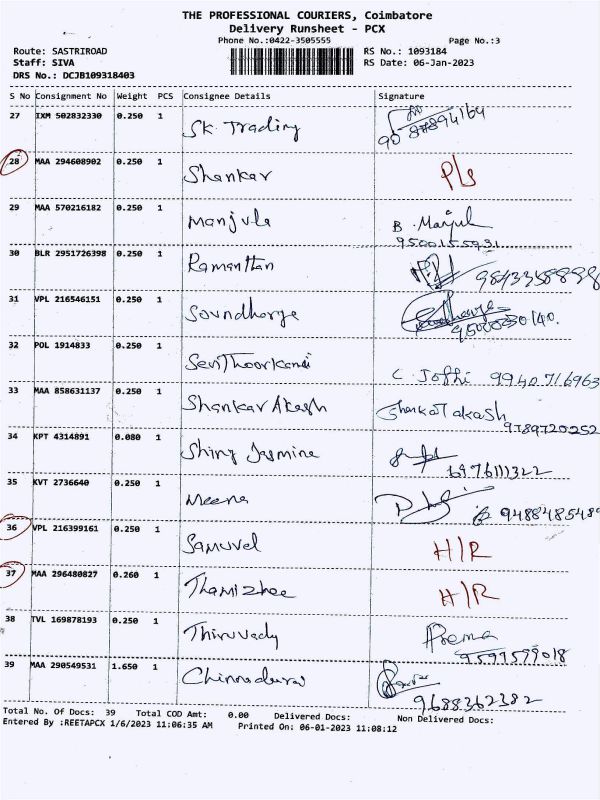 THE PROFESSIONAL COURIERS, Coimbatore
Delivery Runsheet - PCX
Phone No.:0422-3505555
Page No.:3
Route: SASTRIROAD
RS No.: 1093184
Staff: SIVA
RS Date: 06-Jan-2023
DRS No.: DCJB109318403
S No Consignment No Weight PCS Consignee Details Signature
27 IXM 502832330 0.250 1 SK Trading
28 MAA 294608902 0.250 1 Shankar P/s
29 MAA 570216182 0.250 1 Manjula B. Manjul
9500155931
30 BLR 2951726398 0.250 1 Ramanthan 9843358898
31 VPL 216546151 0.250 1 Soundharya
32 POL 1914833 0.250 1 Senthoorkani C. Jothi 9940716963
33 MAA 858631137 0.250 1 Shankar Akash Shankar Akash
9789720252
34 KPT 4314891 0.080 1 Shiny Jasmine
6976111322
35 KVT 2736640 0.250 1 Meena
36 VPL 216399161 0.250 1 Samuvel H/R
37 MAA 296480827 0.260 1 Thamizhee H/R
38 TVL 169878193 0.250 1 Thiruvady Prema
9597579018
39 MAA 290549531 1.650 1 Chinnadurai
9688362382
Total No. Of Docs: 39 Total COD Amt: 0.00 Delivered Docs: Non Delivered Docs:
Entered By :REETAPCX 1/6/2023 11:06:35 AM Printed On: 06-01-2023 11:08:12